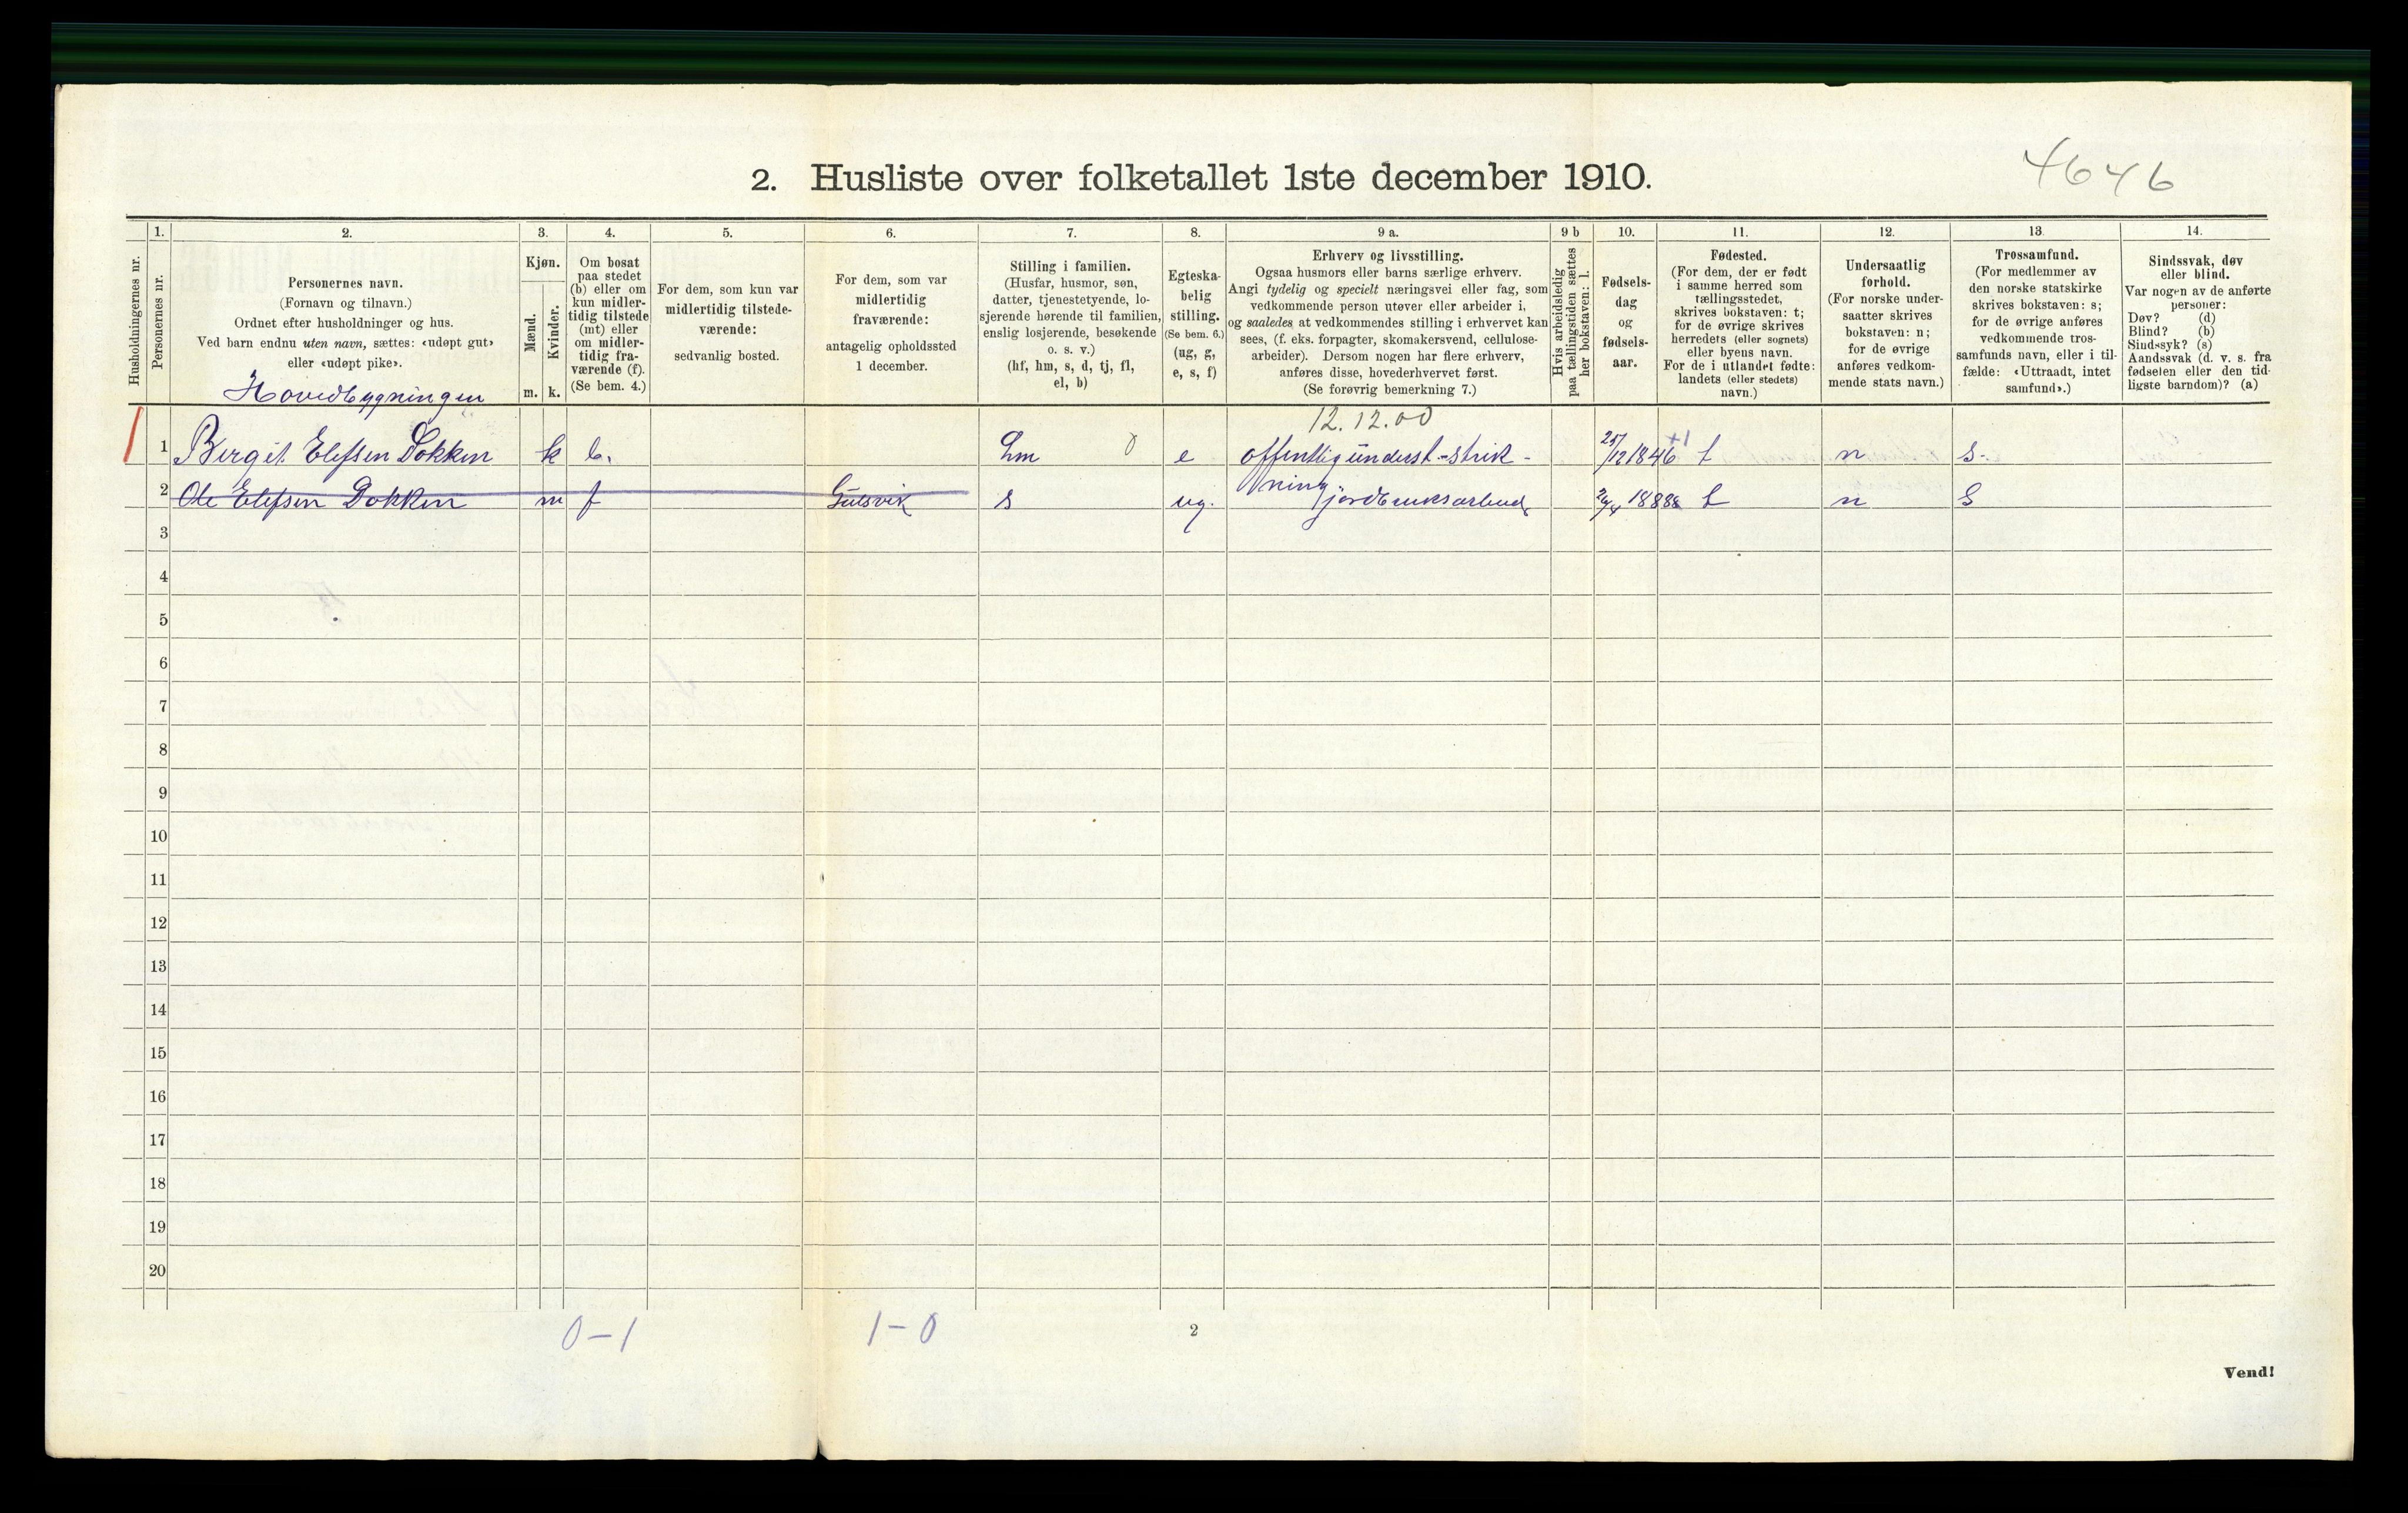 2. Husliste over folketallet 1ste december 1910.
4646
Husholdningernes nr.
1.
Personernes nr.
2.
Personernes navn.
(Fornavn og tilnavn.)
Ordnet efter husholdninger og hus.
Ved barn endnu uten navn, sættes: «udøpt gut»
eller «udøpt pike».
Hovedbygningen
3.
Kjøn.
Mænd.
Kvinder.
m. k.
4.
Om bosat
paa stedet
(b) eller om
kun midler-
tidig tilstede
(mt) eller
om midler-
tidig fra-
værende (f).
(Se bem. 4.)
5.
For dem, som kun var
midlertidig tilstede-
værende:
sedvanlig bosted.
6.
For dem, som var
midlertidig
fraværende:
antagelig opholdssted
1 december.
7.
Stilling i familien.
(Husfar, husmor, søn,
datter, tjenestetyende, lo-
sjerende hørende til familien,
enslig losjerende, besøkende
o. s. v.)
(hf, hm, s, d, tj, fl,
el, b)
8.
Egteska-
belig
stilling.
(Se bem. 6.)
(ug, g,
e, s, f)
9 a.
Erhverv og livsstilling.
Ogsaa husmors eller barns særlige erhverv.
Angi tydelig og specielt næringsvei eller fag, som
vedkommende person utøver eller arbeider i,
og saaledes at vedkommendes stilling i erhvervet kan
sees, (f. eks. forpagter, skomakersvend, cellulose-
arbeider). Dersom nogen har flere erhverv,
anføres disse, hovederhvervet først.
(Se forøvrig bemerkning 7.)
9 b
Hvis arbeidsledig
paa tællingstiden sættes
her bokstaven: l.
10.
Fødsels-
dag
og
fødsels-
aar.
11.
Fødested.
(For dem, der er født
i samme herred som
tællingsstedet,
skrives bokstaven: t;
for de øvrige skrives
herredets (eller sognets)
eller byens navn.
For de i utlandet fødte:
landets (eller stedets)
navn.)
12.
Undersaatlig
forhold.
(For norske under-
saatter skrives
bokstaven: n;
for de øvrige
anføres vedkom-
mende stats navn.)
13.
Trossamfund.
(For medlemmer av
den norske statskirke
skrives bokstaven: s;
for de øvrige anføres
vedkommende tros-
samfunds navn, eller i til-
fælde: «Uttraadt, intet
samfund».)
14.
Sindssvak, døv
eller blind.
Var nogen av de anførte
personer:
Døv? (d)
Blind? (b)
Sindssyk? (s)
Aandssvak (d. v. s. fra
fødselen eller den tid-
ligste barndom)? (a)
12.12.00
1 1 Birgit Elefsen Dokken k b. hm 0 e offentlig underst-strik- 25/12 1846 +1 t n s-
ning
2 Ole Elefsen Dokken m f Gulsvik s ug. jordbruksarbeid 1888 t n s
3
4
5
6
7
8
9
10
11
12
13
14
15
16
17
18
19
20
0-1 1-0
2
Vend!